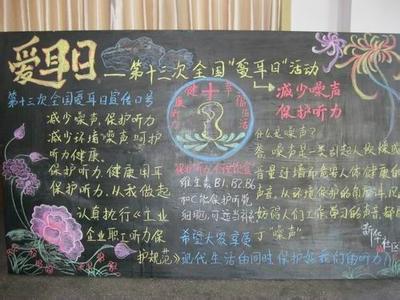 爱耳日
第十三次全国“爱耳日”活动
减少噪声
保护听力
第十三次全国爱耳日宣传口号
减少噪声,保护听力
减少环境噪声呵护
听力健康.
保护听力.健康用耳
保护听力.从我做起
认真执行《工业
企业职工听力保
护规范》
健康听力
幸福生活
保护听力
维生素B1.B2.B6
和C次保护听觉
细胞,可适当补
希望大家享受
现代生活的同时保护好我们的听力
什么是噪声?
答:噪声是一类引起人
音量过强而危害人体健康的
声音.从环境保护的角度
好的人们工作.学习的声音,都
于“噪声”
新华社区